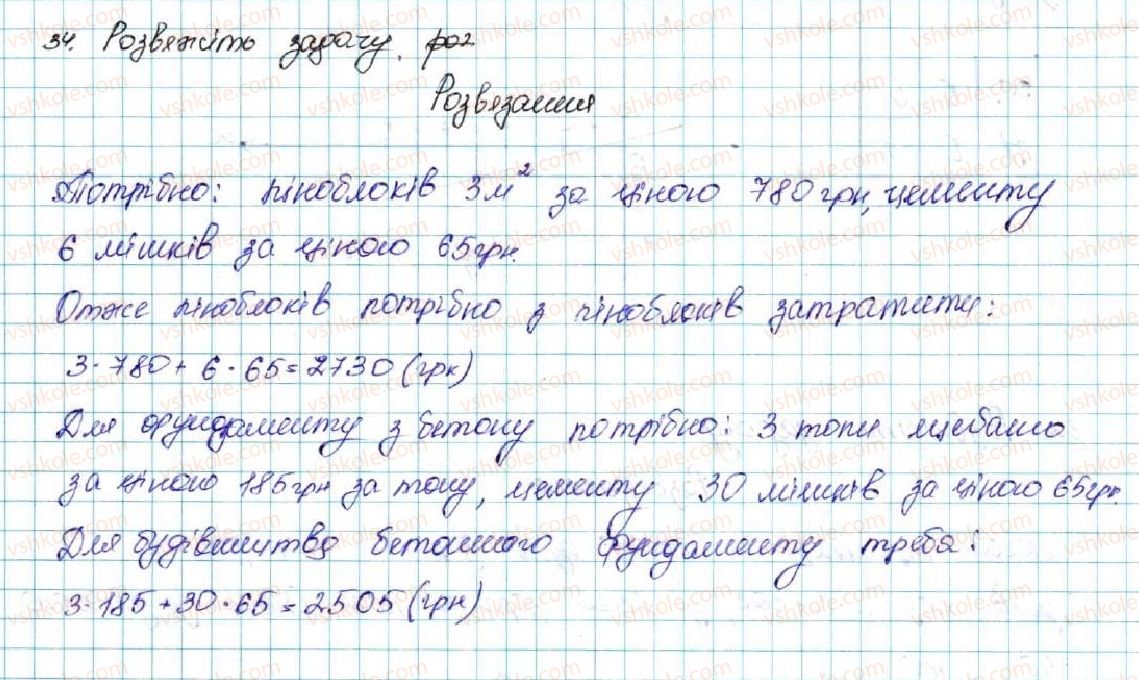 34. Розвяжіть задачу.
Розвязання
Потрібно: піноблоків 3м² за ціною 780 грн, цементу
6 мішків за ціною 65грн.
Отже піноблоків потрібно з піноблоків затратити:
3·780+6·65=2730 (грн)
Для фундаменту з бетону потрібно: 3 тони щебаню
за ціною 185грн за тону, цементу 30 мішків за ціною 65грн.
Для будівництва бетонного фундаменту треба:
3·185+30·65=2505 (грн)
vshkole.com